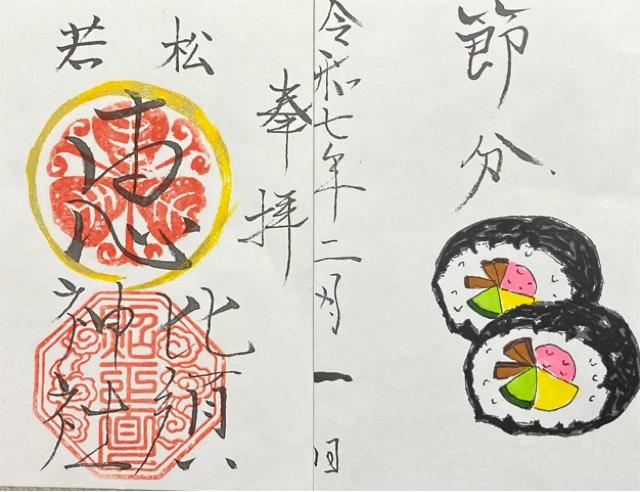 節分
令和七年二月一日
奉拝
若松
恵
比須
神社